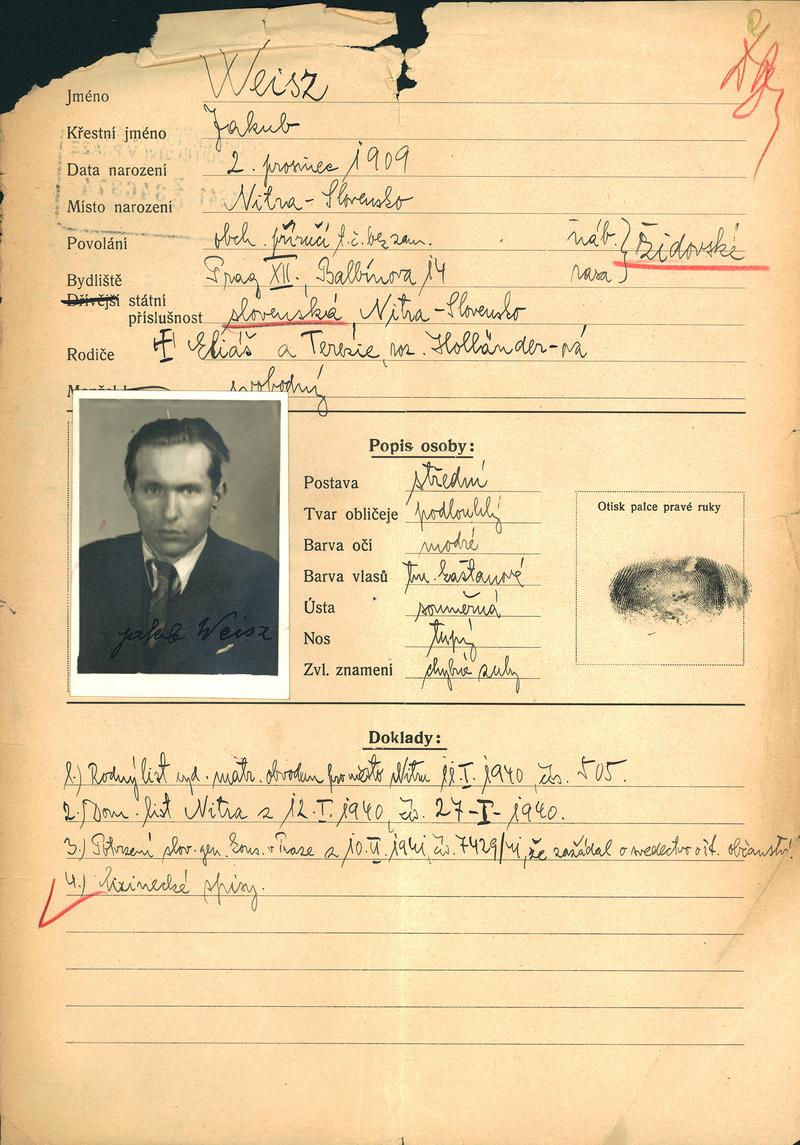 Jméno Weisz
Křestní jméno Jakub
Data narození 2. prosinec 1909
Místo narození Nitra - Slovensko
Povolání obch. příručí t.č. bez zam. náb. } židovské
Bydliště Prag XII., Balbínova 14 rasa }
Dřívější státní
příslušnost slovenská, Nitra - Slovensko
Rodiče Eliáš a Terezie, roz. Holländer-ová
svobodný
Popis osoby:
Postava střední
Tvar obličeje podlouhlý
Barva očí modré
Barva vlasů tm. kaštanové
Ústa souměrná
Nos tupý
Zvl. znamení chybné zuby
Otisk palce pravé ruky
Jakub Weisz
Doklady:
1.) Rodný list vyd. matr. obvodem pro město Nitru 11.I. 1940, čís. 505.
2.) Dom. list Nitra z 12.I. 1940, čs. 27-I-1940.
3.) Potvrzení slov. gen. kons. v Praze z 10.II.1941, čs. 7429/41, že zažádal o svedectvo o št. občanství.
4.) Cizinecké spisy.